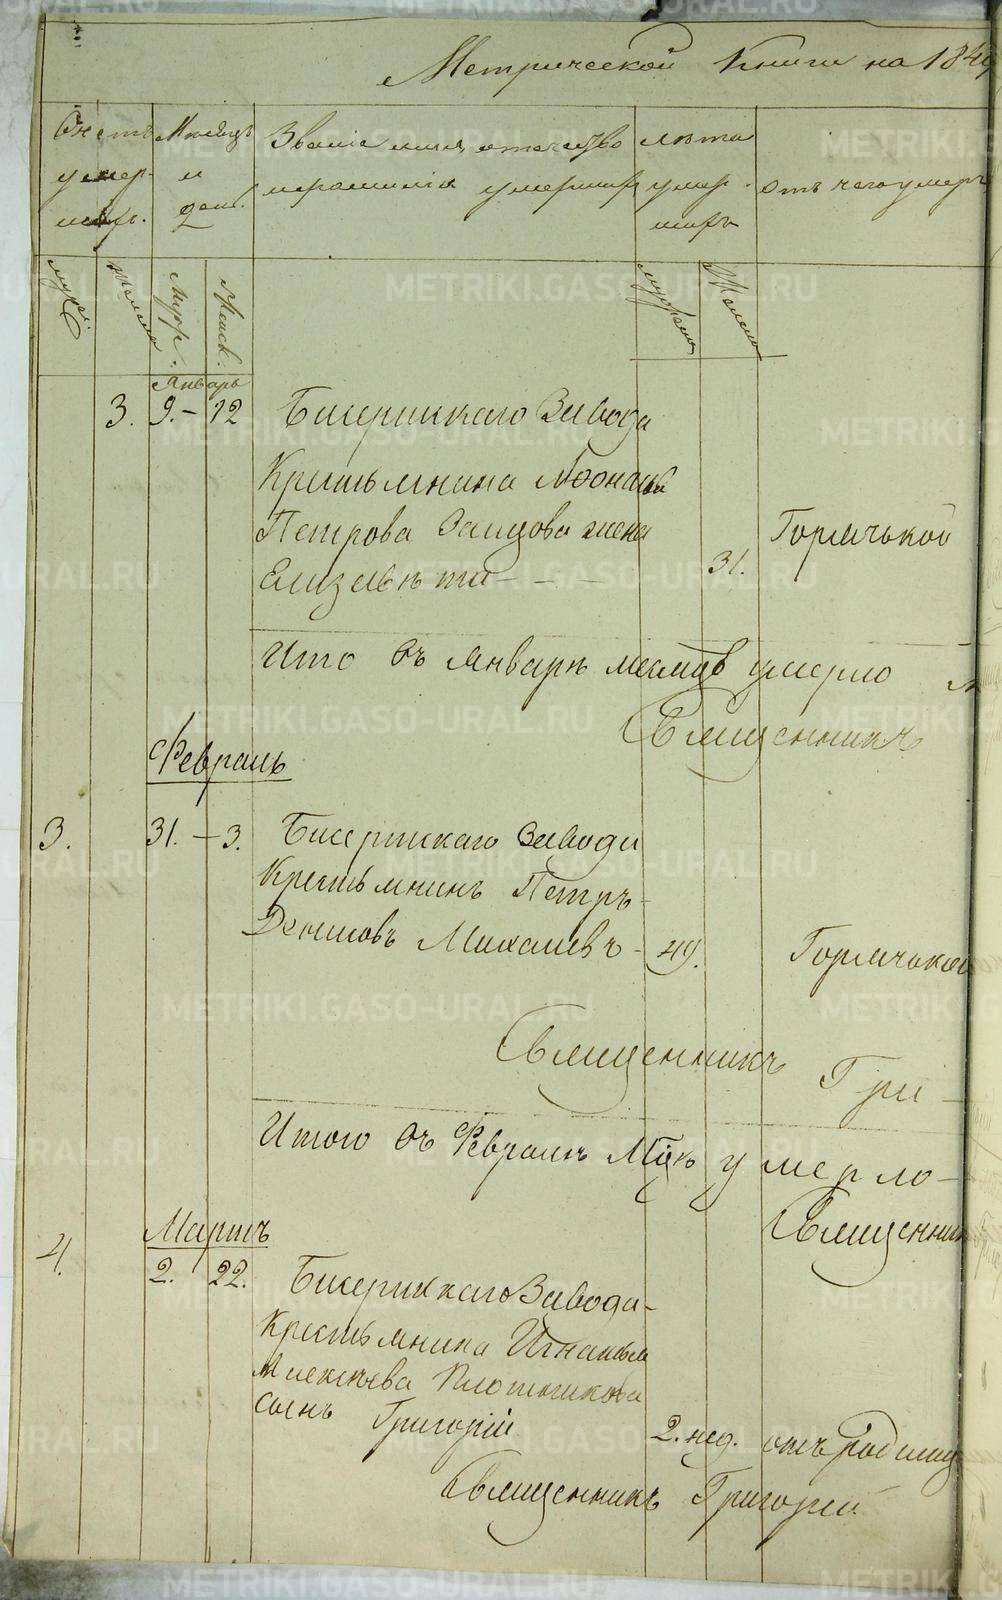 Метрической Книги на 184
Счетъ умер- шихъ.
Месяцъ и день.
Званіе имя, отечество и фамилія умершихъ
лѣта умер- шихъ
отъ чего умеръ
муж.
женска
Муж.
Женск.
мужска
Женска
Январь
3. 9.- 12 Бисерскаго Завода
Крестьянина Афонасья
Петрова Заицова жена
Елизавѣта - - - 31. Горячькой
Итого въ Январѣ месяцѣ умерло
Священникъ
Февраль
3. 31. - 3. Бисерскаго Завода
Крестьянинъ Петръ
Денисовъ Михалевъ - 49. Горячькой
Священникъ Гри -
Итого въ Февралѣ Мцѣ умерло -
Священникъ
Мартъ
4. 2. 22. Бисерскаго Завода -
Крестьянина Игнатья
Алексѣева Плотникова
сынъ Григорій 2. нед. отъ Родимц
Священникъ Григорій
METRIKI.GASO-URAL.RU